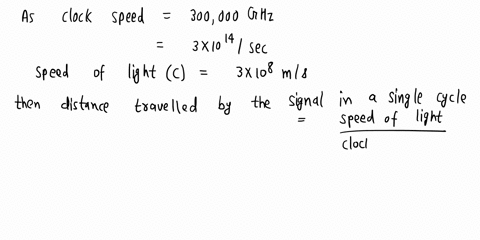 As clock speed = 300,000 GHz
= 3×10¹⁴/sec
Speed of light (C) = 3×10⁸ m/s
then distance travelled by the signal in a single cycle
= speed of light
clocl